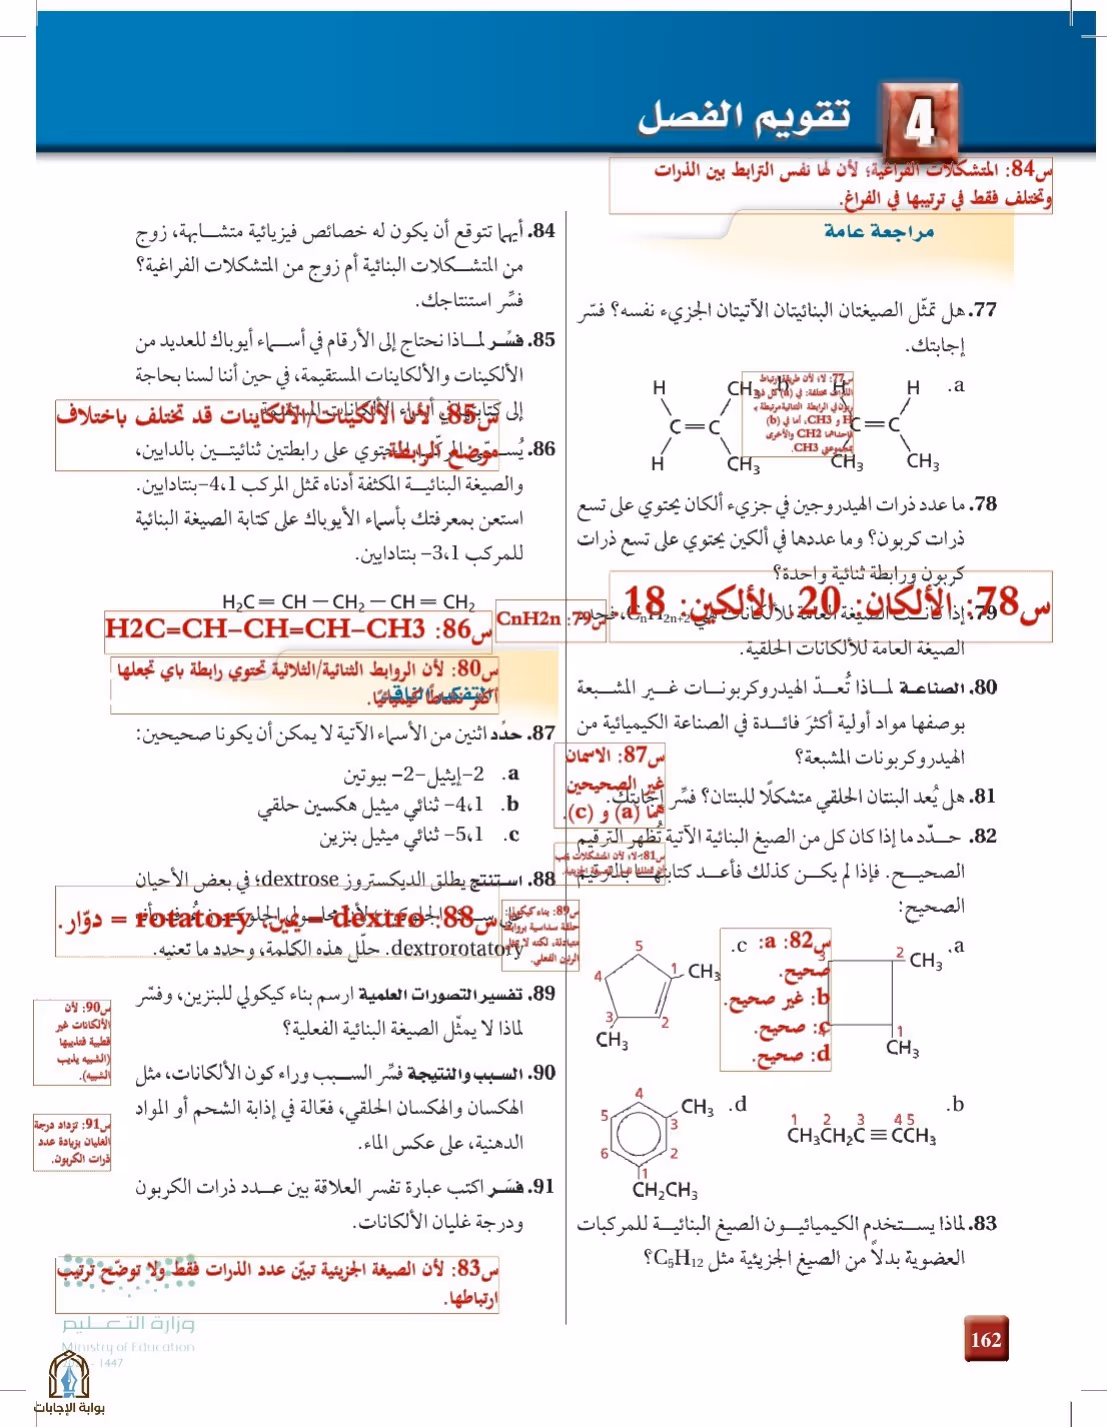 4
تقويم الفصل
س84: المتشكلات الفراغية؛ لأن لها نفس الترابط بين الذرات
وتختلف فقط في ترتيبها في الفراغ.
مراجعة عامة
77. هل تمثّل الصيغتان البنائيتان الآتيتان الجزيء نفسه؟ فسّر
إجابتك.
a.
H
H
C=C
CH3
CH3
b.
H
CH3
C=C
H
CH3
78. ما عدد ذرات الهيدروجين في جزيء ألكان يحتوي على تسع
ذرات كربون؟ وما عددها في ألكين يحتوي على تسع ذرات
كربون ورابطة ثنائية واحدة؟
س78: الألكان: 20 الألكين: 18
79. إذا كانت الصيغة العامة للألكانات هي CnH2n+2،
الصيغة العامة للألكانات الحلقية.
س79: CnH2n
80. الصناعة لماذا تُعدّ الهيدروكربونات غير المشبعة
بوصفها مواد أولية أكثرَ فائدة في الصناعة الكيميائية من
الهيدروكربونات المشبعة؟
81. هل يُعد البنتان الحلقي متشكلًا للبنتان؟ فسِّر إجابتك.
82. حدّد ما إذا كان كل من الصيغ البنائية الآتية تُظهر الترقيم
الصحيح. فإذا لم يكن كذلك فأعد كتابتها بالترقيم
الصحيح:
a.
2 CH3
3
1
CH3
س82: a:
صحيح.
b: غير صحيح.
c: صحيح.
d: صحيح.
c.
5
4
1 CH3
3
2
CH3
b.
1 2 3 4 5
CH3CH2C≡CCH3
d.
4
5
CH3
3
6
2
1
CH2CH3
83. لماذا يستخدم الكيميائيون الصيغ البنائية للمركبات
العضوية بدلاً من الصيغ الجزيئية مثل C5H12؟
84. أيهما تتوقع أن يكون له خصائص فيزيائية متشابهة، زوج
من المتشكلات البنائية أم زوج من المتشكلات الفراغية؟
فسِّر استنتاجك.
85. فسِّر لماذا نحتاج إلى الأرقام في أسماء أيوباك للعديد من
الألكينات والألكاينات المستقيمة، في حين أننا لسنا بحاجة
إلى
س85: لأن الألكينات/الألكاينات قد تختلف باختلاف
موضع الرابطة.
86. على رابطتين ثنائيتين بالدايين،
والصيغة البنائية المكثفة أدناه تمثل المركب 4،1–بنتادايين.
استعن بمعرفتك بأسماء الأيوباك على كتابة الصيغة البنائية
للمركب 3،1– بنتادايين.
H2C = CH — CH2 — CH = CH2
س86: H2C=CH–CH=CH–CH3
س80: لأن الروابط الثنائية/الثلاثية تحتوي رابطة باي تجعلها
أكثر نشاطًا كيميائيًا.
التفكير الناقد
87. حدِّد اثنين من الأسماء الآتية لا يمكن أن يكونا صحيحين:
a. 2–إيثيل–2– بيوتين
b. 4،1– ثنائي ميثيل هكسين حلقي
c. 5،1– ثنائي ميثيل بنزين
س87: الاسمان
غير الصحيحين
هما (a) و (c).
88. استنتج يطلق الديكستروز dextrose؛ في بعض الأحيان
س88: dextro = يمين، rotatory = دوّار.
dextrorotatory. حلّل هذه الكلمة، وحدد ما تعنيه.
89. تفسير التصورات العلمية ارسم بناء كيكولي للبنزين، وفسّر
لماذا لا يمثّل الصيغة البنائية الفعلية؟
س90: لأن
الألكانات غير
قطبية فتذيبها
(الشبيه يذيب
الشبيه).
90. السبب والنتيجة فسِّر السبب وراء كون الألكانات، مثل
الهكسان والهكسان الحلقي، فعّالة في إذابة الشحم أو المواد
الدهنية، على عكس الماء.
س91: تزداد درجة
الغليان بزيادة عدد
ذرات الكربون.
91. فسَر اكتب عبارة تفسر العلاقة بين عدد ذرات الكربون
ودرجة غليان الألكانات.
س83: لأن الصيغة الجزيئية تبيّن عدد الذرات فقط ولا توضّح ترتيب
ارتباطها.
وزارة التعليم
Ministry of Education
- 1447
بوابة الإجابات
162